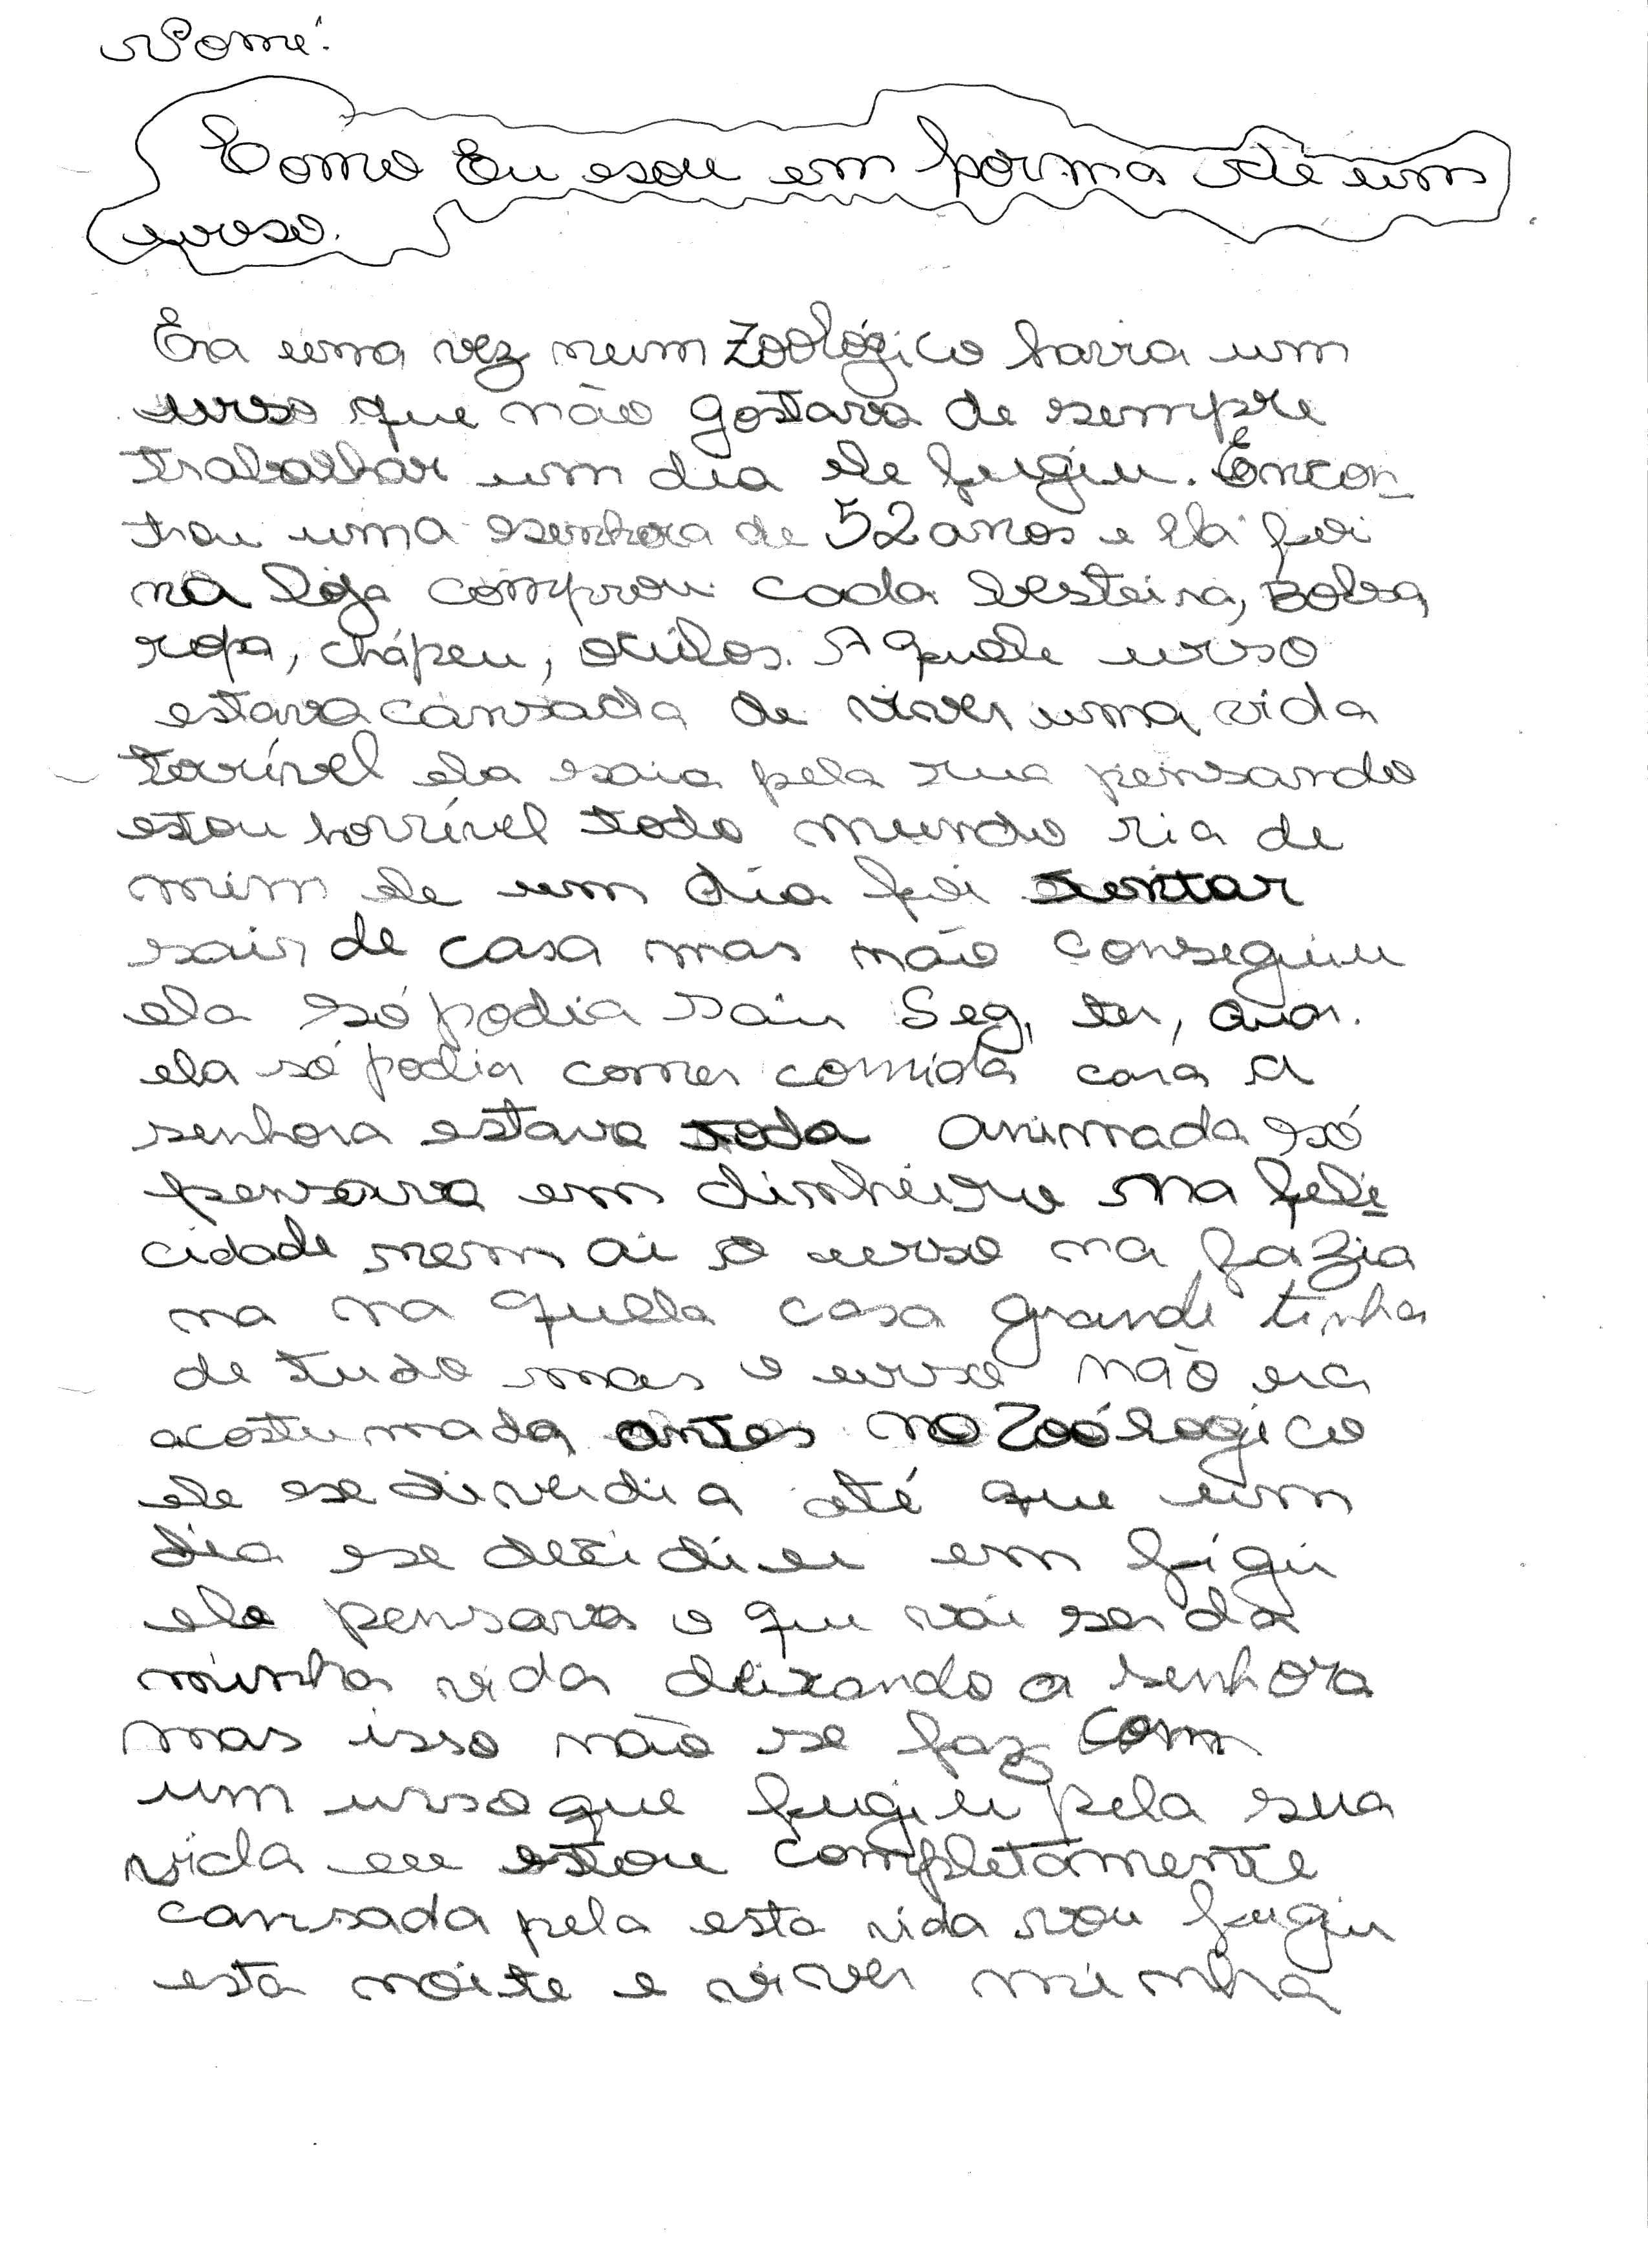 Nome:
Como Eu sou em forma de um
urso.
Era uma vez num zoológico havia um
urso que não gostava de sempre
trabalhar um dia ele fugiu. Encon-
trou uma senhora de 52 anos e ela foi
na loja comprou cada besteira, Bolsa
ropa, chápeu, oculos. Aquele urso
estava cansada de viver uma vida
terrível ela saia pela rua pensando
estou horrível todo mundo ria de
mim ele um dia foi tentar
sair de casa mas não conseguiu
ela só podia sair Seg, ter, Quar.
ela só podia comer comida cara a
senhora estava toda animada só
pensava em dinheiro na feli
cidade nem ai o urso na fazia
na na quela casa grande tinha
de tudo mas o urso não era
acostumada antes no Zoólogico
ele se diverdia até que um
dia se decidiu em figir
ele pensava o que vai ser da
minha vida deixando a senhora
mas isso não se faz com
um urso que fugiu pela sua
vida eu estou completamente
cansada pela esta vida vou fugir
esta noite e viver minha